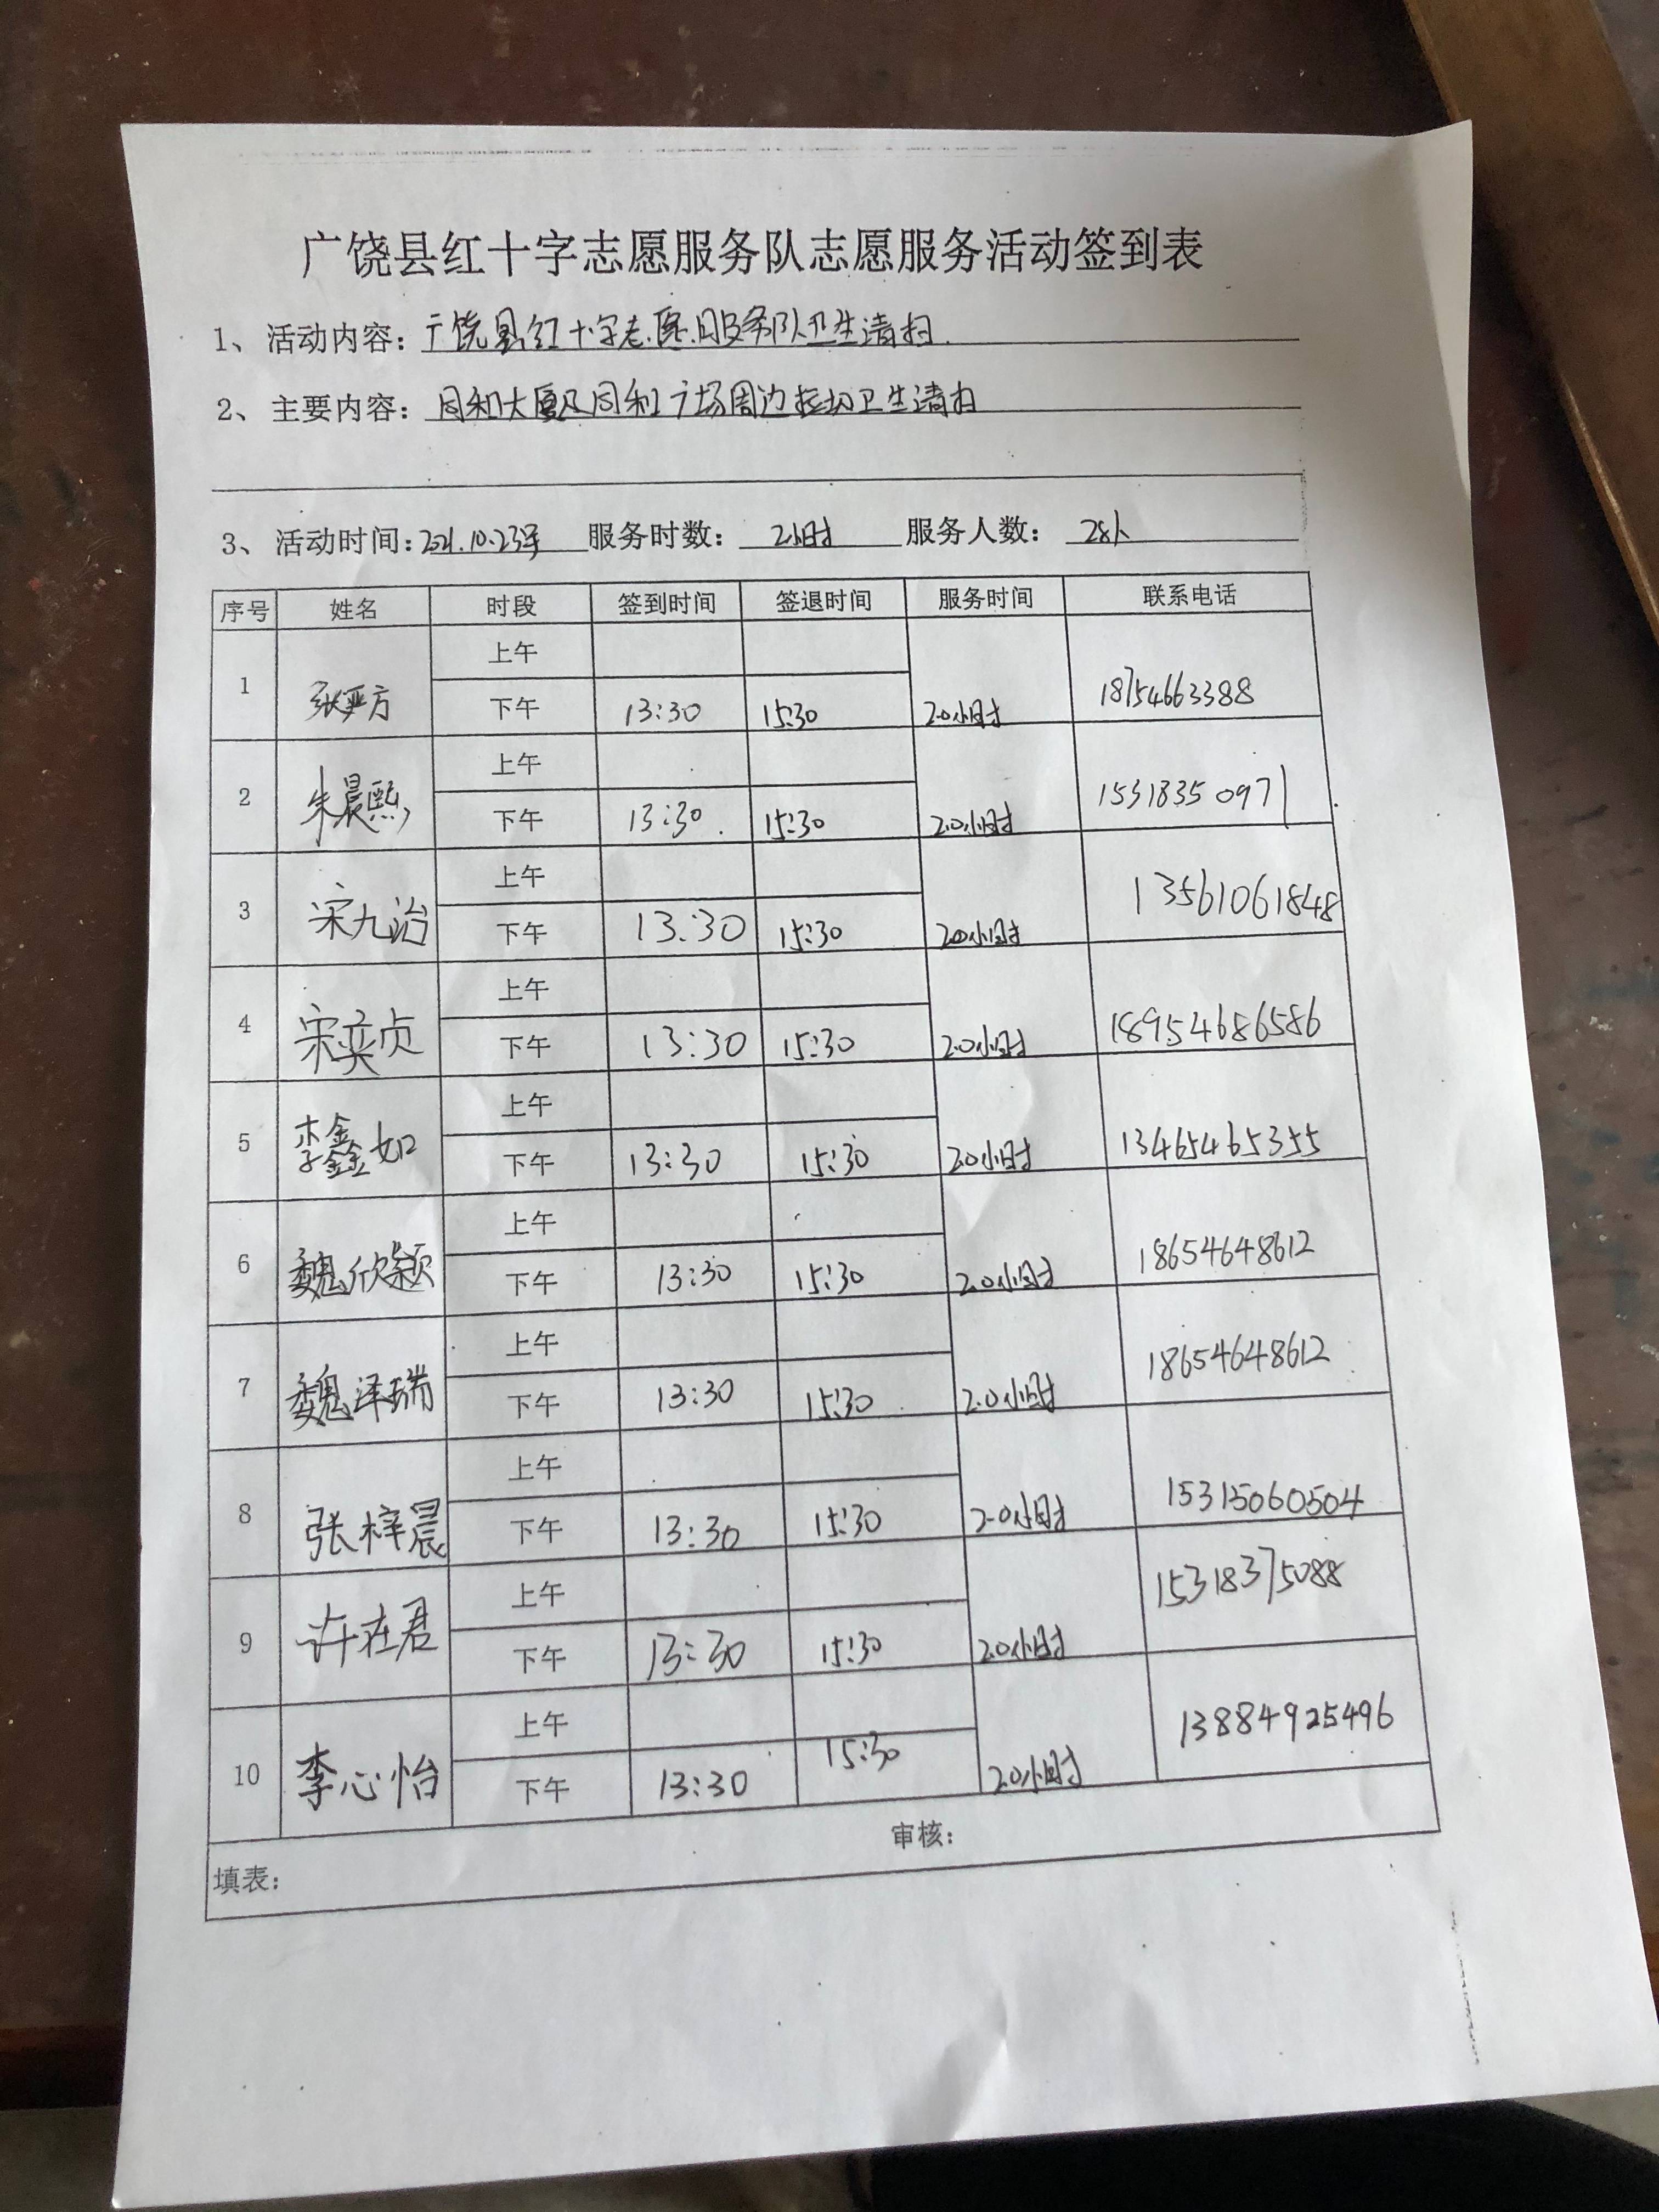 广饶县红十字志愿服务队志愿服务活动签到表
1、活动内容：广饶县红十字志愿服务队卫生清扫
2、主要内容：同和大厦及同和广场周边卫生清扫
3、活动时间：2021.10.23号 服务时数：2小时 服务人数：28人
序号 姓名 时段 签到时间 签退时间 服务时间 联系电话
上午
1 张严方 18754663388
下午 13:30 15:30 2.0小时
上午
2 朱晨熙 15318350971
下午 13:30 15:30 2.0小时
上午
3 宋九治 13561061848
下午 13:30 15:30 2.0小时
上午
4 宋奕贞 18954686586
下午 13:30 15:30 2.0小时
上午
5 李鑫如 13465465355
下午 13:30 15:30 2.0小时
上午
6 魏欣颖 18654648612
下午 13:30 15:30 2.0小时
上午
7 魏泽瑞 18654648612
下午 13:30 15:30 2.0小时
上午
8 张梓晨 15315060504
下午 13:30 15:30 2.0小时
上午
9 许在君 15318375088
下午 13:30 15:30 2.0小时
上午
10 李心怡 13884925496
下午 13:30 15:30 2.0小时
填表： 审核：